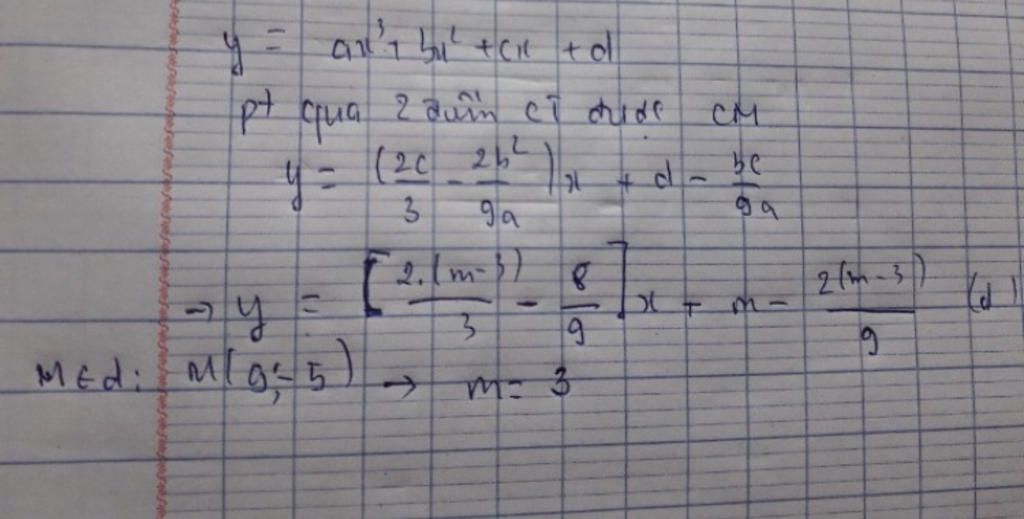 y = ax³ + bx² + cx + d
pt qua 2 điểm CT được CM
y = (2c/3 - 2b²/9a)x + d - bc/9a
→ y = [2.(m-3)/3 - 8/9]x + m - 2(m-3)/9 (d)
M ∈ d: M(9;-5) → m = 3